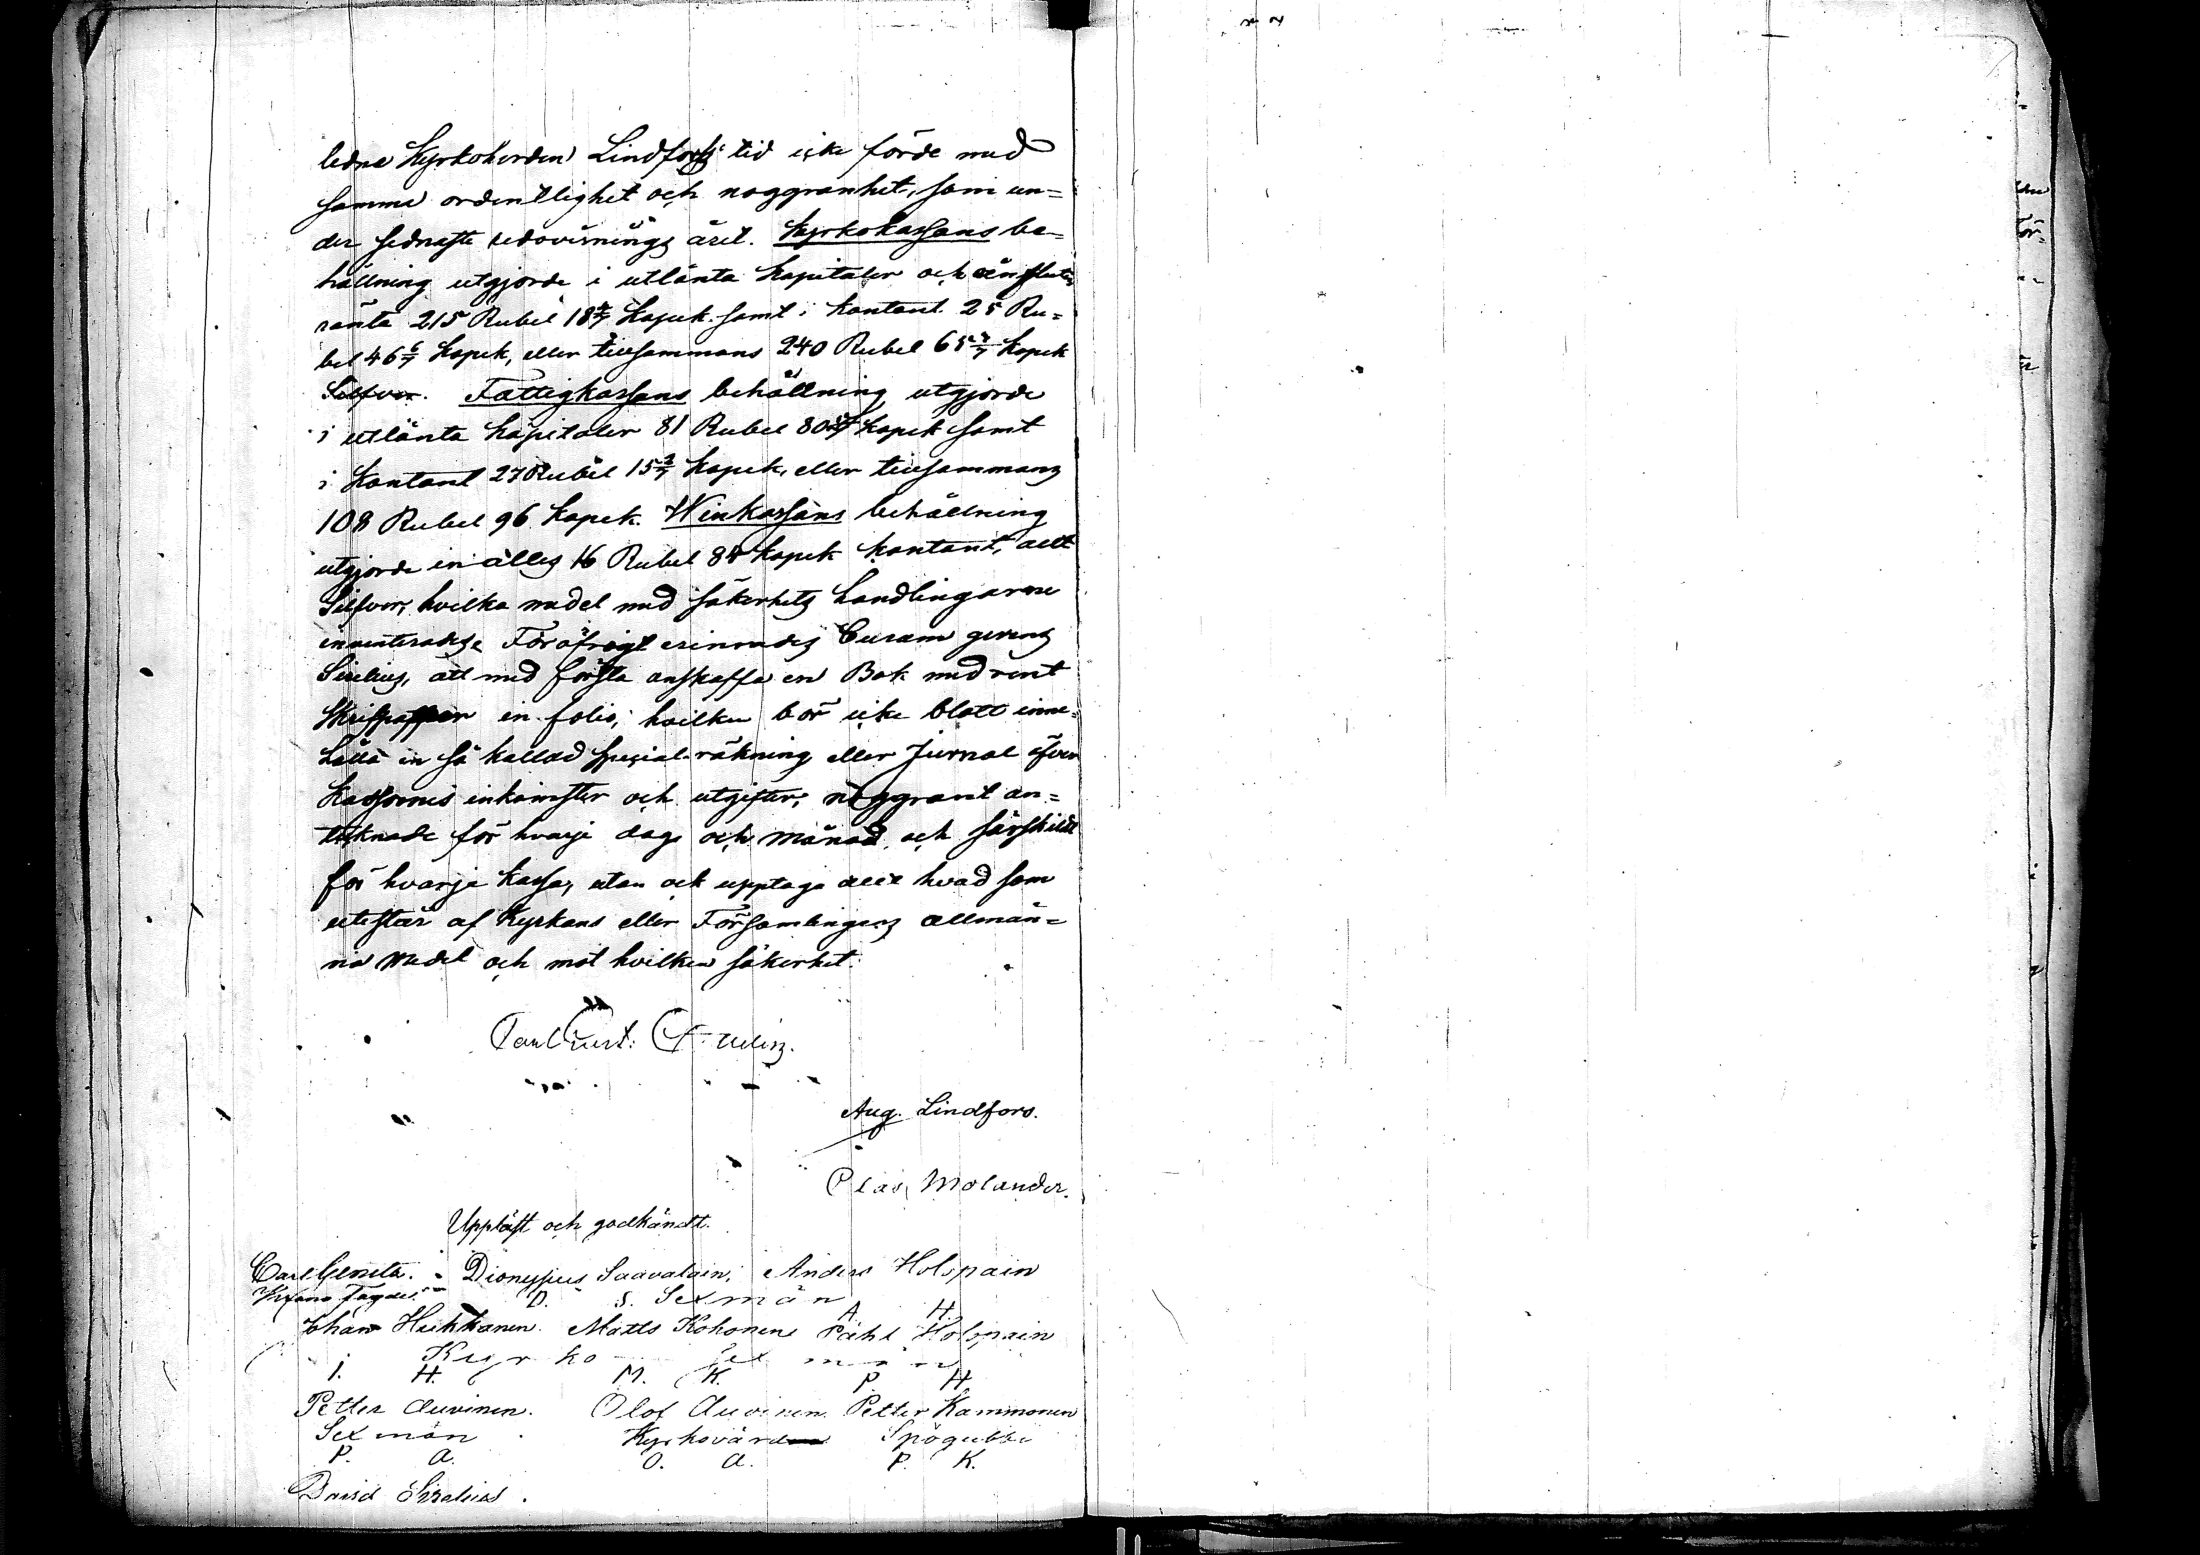 ledne Kyrkoherden Lindfors tid icke förde med
samma ordentlighet och noggranhet, som un=
der sednaste redovisnings året. Kyrkokassans be=
hållning utgjorde i utlånta Kapitaler och
ränta 215 Rubel 18 4/7 Kopek samt i kontant 25 Ru=
bel 46 6/7 Kopek, eller tillsammans 240 Rubel 65 3/7 Kopek
Silfver. Fattigkassans behållning utgjorde
i utlånta Kapitaler 81 Rubel 80 Kopek samt
i Kontant 27 Rubel 15 3/7 Kopek, eller tillsammans
108 Rubel 96 Kopek. Winkassans behållning
utgjorde in alles 16 Rubel 84 Kopek kontant, allt
Silfver, hvilka medel med säkerhets handlingarne
inventerades. Föröfrigt erinrades Curam gerens
Sirelius, att med första anskaffa en Bok med rent
Skrifpapper in folio, hvilken bör icke blott inne=
hålla en så kallad special-räkning eller Jurnal öfver
Kassornes inkomster och utgifter, noggrant an=
tecknade för hvarje dag och månad och särskildt
för hvarje Kassa, utan ock upptaga allt hvad som
utestår af Kyrkans eller Församlingens allmän=
na medel och mot hvilken säkerhet.
Aug. Lindfors.
Clas Molander.
Uppläst och godkändt.
Carl Dionysius Saavalain, Anders Holopain
D. S. Sexmän A. H.
Johan Hukkanen. Matts Kohonen Påhl Holopain
Kyrko Sexmän
J. H. M. K. P. H.
Petter Auvinen. Olof Auvinen Petter Kammonen
Sexmän Kyrkovärd Spögubbe
P. A. O. A. P. K.
David Sirelius.